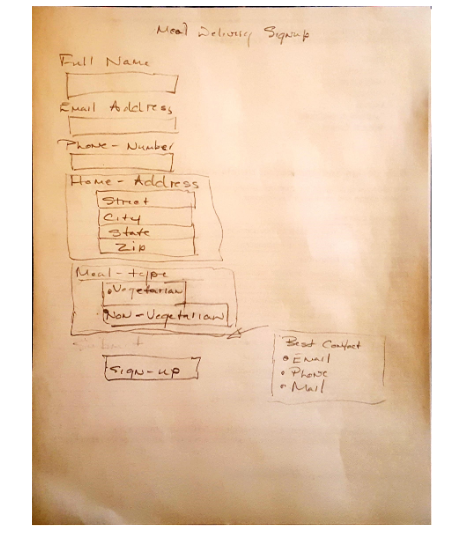 Meal Delivery Signup
Full Name
Email Address
Phone-Number
Home-Address
Street
City
State
Zip
Meal-type
Vegetarian
Non-Vegetarian
Best Contact
Email
Phone
Mail
Sign-up